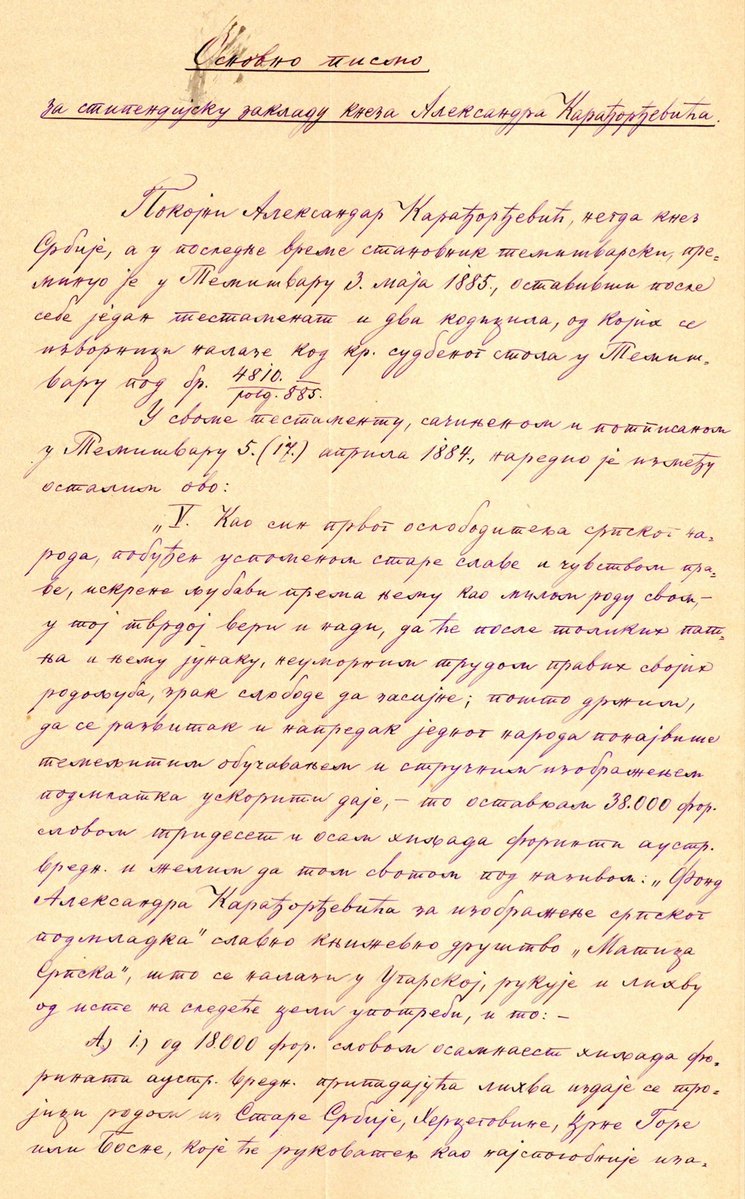 Основно писмо
за стипендијску закладу кнеза Александра Карађорђевића.
Покојни Александар Карађорђевић, негда кнез
Србије, а у последње време становник темишварски, пре-
минуо је у Темишвару 3. маја 1885., оставивши после
себе један тестаменат и два кодицила, од којих се
изворници налазе код кр. судбеног стола у Темиш-
вару под бр. 4810./polg. 885.
У своме тестаменту, сачињеном и потписаном
у Темишвару 5. (17.) априла 1884., наредио је између
осталим ово:
„V. Као син првог ослободитеља српског на-
рода, побуђен успоменом старе славе и чувством пра-
ве, искрене љубави према њему као милом роду свом, –
у тој тврдој вери и нади, да ће после толиких пат-
ња и њему јунаку, неуморним трудом правих својих
родољуба, зрак слободе да засијне; пошто држим,
да се развитак и напредак једног народа понајвише
темељитим обучавањем и стручним изображењем
подмлатка ускорити даје, – то остављам 38.000 фор.
словом тридесет и осам хиљада форинти аустр.
вредн. и желим да том свотом под називом: „Фонд
Александра Карађорђевића за изображење српског
подмладка" славно књижевно друштво „Матица
Српска", што се налази у Угарској, рукује и лихву
од исте на следеће цели употреби, и то: –
А) 1.) од 18.000 фор. словом осамнаест хиљада фо-
рината аустр. вредн. припадајућа лихва издаје се тро-
јици родом из Старе Србије, Херцеговине, Црне Горе
или Босне, које ће руковатељ као најспособније иза-